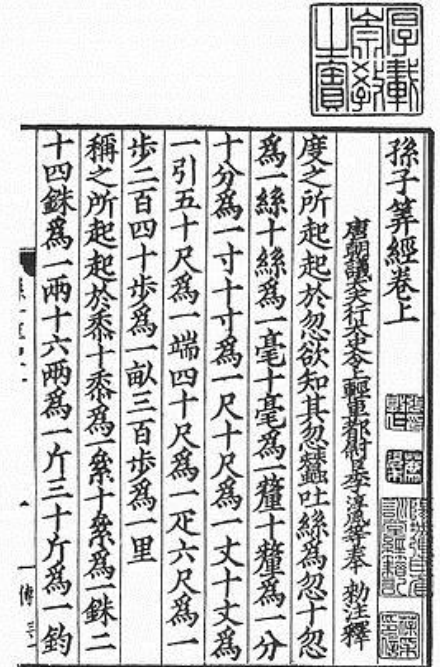 孫子筭經卷上
唐朝議大夫行太史令上輕車都尉臣李淳風等奉 勅注釋
度之所起起於忽欲知其忽蠶吐絲為忽十忽
為一絲十絲為一毫十毫為一釐十釐為一分
十分為一寸十寸為一尺十尺為一丈十丈為
一引五十尺為一端四十尺為一疋六尺為一
步二百四十步為一畝三百步為一里
稱之所起起於黍十黍為一絫十絫為一銖二
十四銖為一兩十六兩為一斤三十斤為一鈞